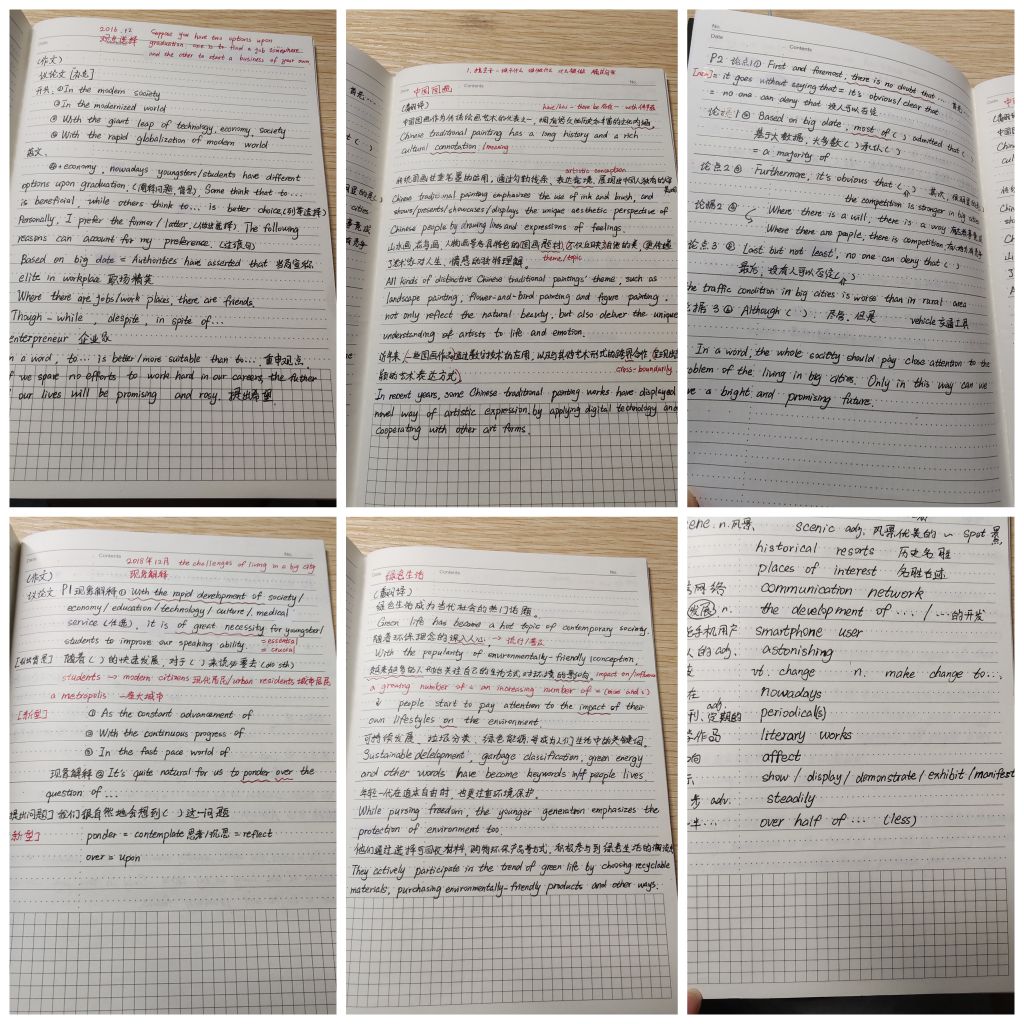 2016.12 Suppose you have two options upon
观点选择 graduation: one is to find a job somewhere
Date and the other to start a business of your own.
(作文)
议论文
开头. ①In the modern society
②In the modernized world
③ With the giant leap of technology, economy, society
④ With the rapid globalization of modern world
范文.
④+economy, nowadays youngsters/students have different
options upon graduation. Some think that to...
is beneficial, while others think to... is better choice.(列等选择)
Personally, I prefer the former/latter. (做出选择) The following
reasons can account for my preference.
Based on big date = Authorities have asserted that
elite in workplac 职场精英
Where there are jobs/work places, there are friends.
Though - while, despite, in spite of...
enterpreneur 企业家
n a word, to... is better/more suitable than to... 重申观点.
f we spare no efforts to work hard in our careers, the futher
our lives will be promising and rosy. 提出希望.
Date Contents No.
中国国画
(翻译)
have/has - there be 有 - with
中国国画作为传统绘画艺术的代表之一, 拥有悠久的历史和丰富的文化内涵
Chinese traditional painting has a long history and a rich
cultural connotation. /meaning
artistic conception
传统国画注重笔墨的应用, 通过勾勒线条, 表达意境, 展现出中国人独有的审美
Chinese traditional painting emphasizes the use of ink and brush, and
shows/presents/showcases/displays the unique aesthetic perspective of
Chinese people by drawing lines and expressions of feelings.
山水画, 花鸟画, 人物画等各具特色的国画题材, 不仅反映自然的美, 更传递
了艺术家对人生, 情感的独特理解. theme/topic
All kinds of distinctive Chinese traditional paintings' theme, such as
landscape painting, flower-and-bird painting and figure painting,
not only reflect the natural beauty, but also deliver the unique
understanding of artists to life and emotion.
近年来, 一些国画作品通过数字技术的应用, 以及与其他艺术形式的跨界合作, 呈现出
新颖的艺术表达方式. cross-boundarily
In recent years, some Chinese traditional painting works have displayed
novel way of artistic expression by applying digital technology and
cooperating with other art forms.
No.
Date Contents
P2 论点1① First and foremost, there is no doubt that...
= it goes without saying that = it's obvious/clear that
= no one can deny that 没人可以否定
论据1② Based on big date, most of ( ) admitted that ( )
基于大数据, 大多数( )承认( )
= a majority of
论点2③ Furthermore, it's obvious that ( )
the competition is stronger in big cities
论据2④ Where there is a will, there is a way
Where there are paple, there is competition.
论点3⑤ Last but not least, no one can deny that ( )
最后, 没有人可以否定( )
the traffic condition in big cities is worse than in rural area
论据3⑥ Although ( ). 尽管, 但是 vehicle 交通工具
In a word, the whole society should pay close attention to the
oblem of the living in big cities. Only in this way can we
ve a bright and promising future.
Date Contents No.
2018年12月 the challenges of living in a big city
(作文) 现象解释
议论文 P1现象解释① With the rapid development of society/
economy/education/technology/culture/medical
service(任选), it is of great necessity for youngster/
students to improve our speaking ability. = essential
= crucial
随着( )的快速发展, 对于( )来说必要去(do sth)
students → modern citizens 现代居民/urban residents 城市居民
a metropolis 一座大城市
[新型] ① As the constant advancement of
② With the continuous progress of
③ In the fast pace world of
现象解释② It's quite natural for us to ponder over the
question of...
提出问题] 我们很自然地会想到( )这一问题
新型] ponder = contemplate 思考/沉思 = reflect
over = upon
Date 绿色生活 Contents No.
(翻译)
绿色生活成为当代社会的热门话题.
Green life has became a hot topic of contemporary society.
随着环保理念的深入人心, → 流行/普及
With the popularity of environmentally-friendly conception,
越来越多的人开始关注自己的生活方式对环境的影响. impact on/influence
a growing number of = an increasing number of = (more and ~)
↓ people start to pay attention to the impact of their
own lifestyles on the environment.
可持续发展、垃圾分类、绿色能源等成为人们生活中的关键词.
Sustainable delelopment, garbage classification, green energy
and other words have become keywords in/of people lives.
年轻一代在追求自由时, 也更注重环境保护.
While pursing freedom, the younger generation emphasizes the
protection of environment too.
他们通过选择可回收材料, 购物环保产品等方式, 积极参与到绿色生活的潮流
They actively participate in the trend of green life by choosing recyclable
materials, purchasing environmentally-friendly products and other ways.
cene. n.风景. scenic adj. 风景优美的 ~ spot 景
historical resorts 历史名胜
places of interest 名胜古迹
网络 communication network
发展) n. the development of .../...的开发
手机用户 smartphone user
人的 adj. astonishing
vt. change n. make change to...
在 nowadays
刊、定期的 adj. periodical(s)
作品 literary works
响 affect
示 show / display / demonstrate / exhibit /manifest
步 adv. steadily
半... over half of ... (less)